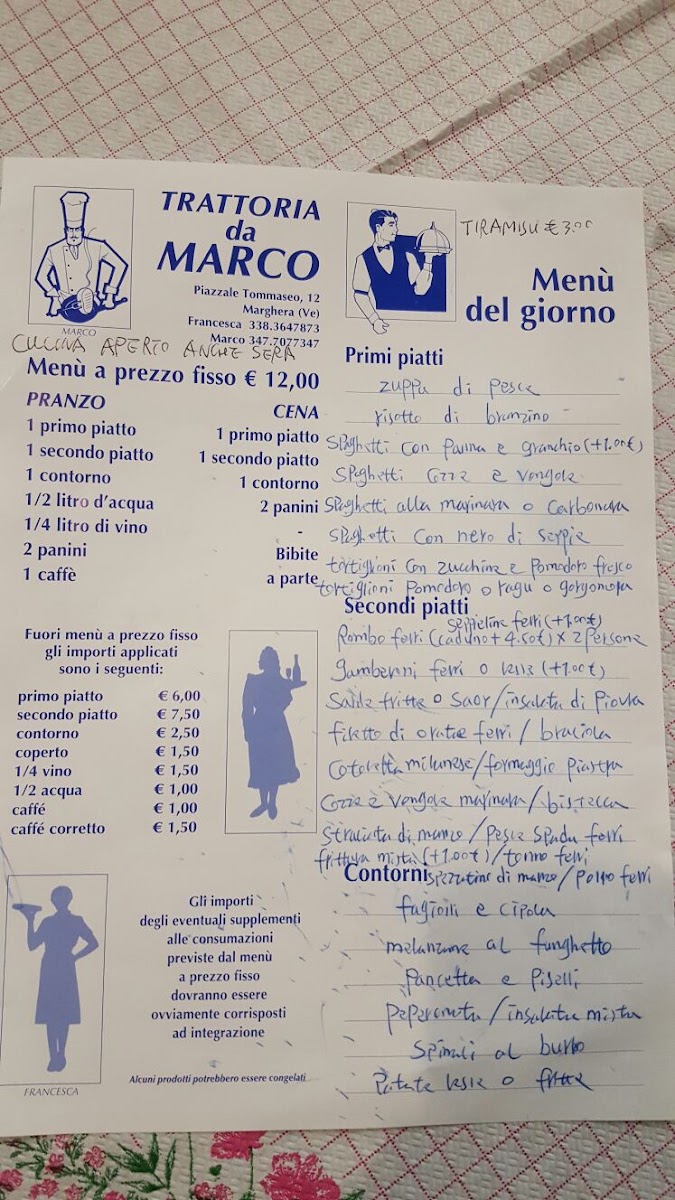 TRATTORIA
da
MARCO
Piazzale Tommaseo, 12
Marghera (Ve)
Francesca 338.3647873
Marco 347.7077347
MARCO
CUCINA APERTO ANCHE SERA
Menù a prezzo fisso € 12,00
PRANZO
1 primo piatto
1 secondo piatto
1 contorno
1/2 litro d'acqua
1/4 litro di vino
2 panini
1 caffè
CENA
1 primo piatto
1 secondo piatto
1 contorno
2 panini
-
Bibite
a parte
Fuori menù a prezzo fisso
gli importi applicati
sono i seguenti:
primo piatto € 6,00
secondo piatto € 7,50
contorno € 2,50
coperto € 1,50
1/4 vino € 1,50
1/2 acqua € 1,00
caffé € 1,00
caffé corretto € 1,50
FRANCESCA
Gli importi
degli eventuali supplementi
alle consumazioni
previste dal menù
a prezzo fisso
dovranno essere
ovviamente corrisposti
ad integrazione
Alcuni prodotti potrebbero essere congelati
TIRAMISÙ € 3.00
Menù
del giorno
Primi piatti
zuppa di pesce
risotto di branzino
spaghetti con panna e granchio (+1.00€)
spaghetti cozze e vongole
spaghetti alla marinara o carbonara
spaghetti con nero di seppie
tortiglioni con zucchine e pomodoro fresco
tortiglioni pomodoro o ragu o gorgonzola
Secondi piatti
seppioline ferri (+1.00€)
Rombo ferri (caduno + 4.50€) x 2 persone
gamberoni ferri o (+1.00€)
sarde fritte o saor/insalata di piovra
filetto di orata ferri / braciola
cotoletta milanese/formaggio piastra
cozze e vongole marinara / bistecca
straccata di manzo / pesce spada ferri
frittura mista (+1.00€) / tonno ferri
spezzatino di manzo / polpo ferri
Contorni
fagioli e cipola
melanzane al funghetto
pancetta e piselli
peperonata/insalata mista
spinaci al burro
Patate lesse o fritte